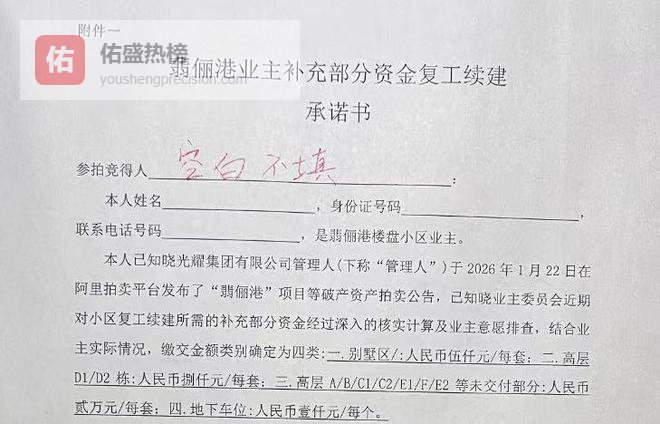 附件一
佑
佑盛热榜
youshengprecision.com
翡俪港业主补充部分资金复工续建
承诺书
参拍竞得人 空白不填 :
本人姓名 ,身份证号码 ,
联系电话号码 ,是翡俪港楼盘小区业主。
本人已知晓光耀集团有限公司管理人(下称“管理人”)于 2026 年 1 月 22 日在
阿里拍卖平台发布了“翡俪港”项目等破产资产拍卖公告,已知晓业主委员会近期
对小区复工续建所需的补充部分资金经过深入的核实计算及业主意愿排查,结合业
主实际情况,缴交金额类别确定为四类:一.别墅区/:人民币伍仟元/每套;二.高层
D1/D2 栋:人民币捌仟元/每套;三.高层 A/B/C1/C2/E1/F/E2 等未交付部分:人民币
贰万元/每套;四.地下车位:人民币壹仟元/每个。